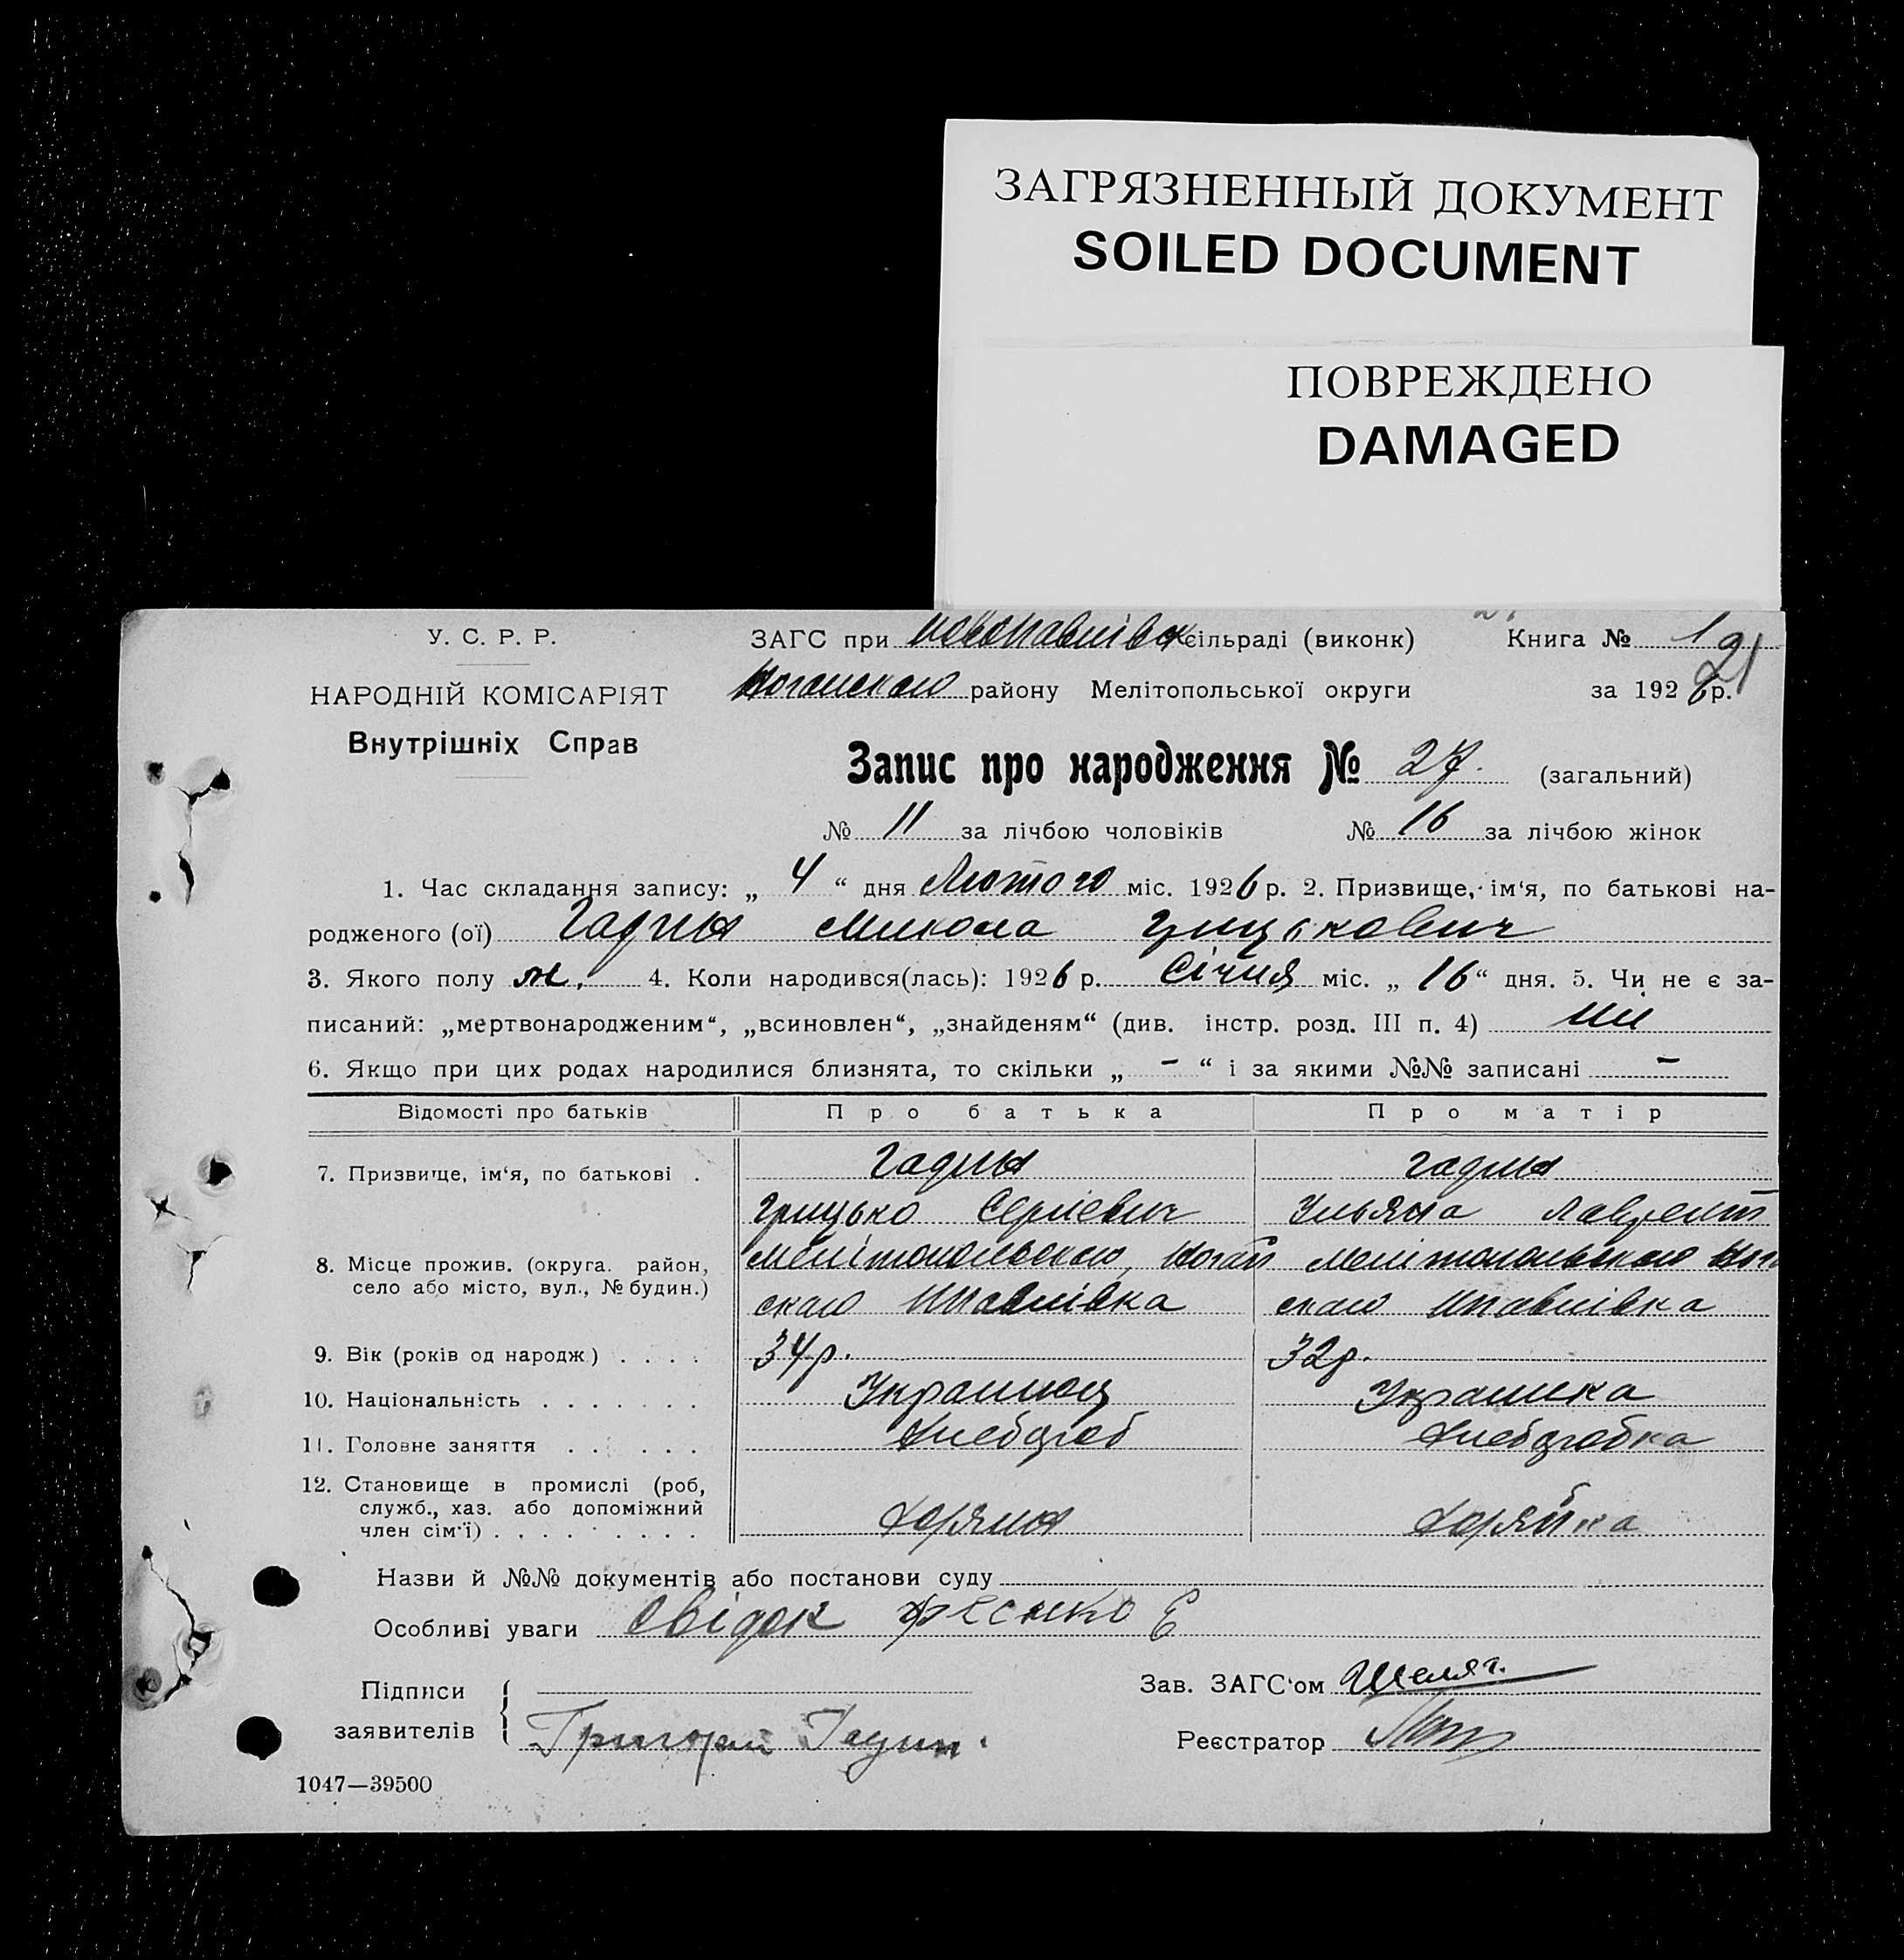 ЗАГРЯЗНЕННЫЙ ДОКУМЕНТ
SOILED DOCUMENT
ПОВРЕЖДЕНО
DAMAGED
У. С. Р. Р.
НАРОДНІЙ КОМІСАРІЯТ
Внутрішніх Справ
ЗАГС при Новопавлівск сільраді (виконк) Книга № 1
21
району Мелітопольської округи за 1926 р.
Запис про народження № 27. (загальний)
№ 11 за лічбою чоловіків № 16 за лічбою жінок
1. Час складання запису: „ 4 “ дня Лютого міс. 1926 р. 2. Призвище, ім‘я, по батькові на-
родженого (ої) Микола Грицькович
3. Якого полу 4. Коли народився(лась): 1926 р. Січня міс. „ 16 “ дня. 5. Чи не є за-
писаний: „мертвонародженим“, „всиновлен“, „знайденям“ (див. інстр. розд. III п. 4) Ні
6. Якщо при цих родах народилися близнята, то скільки „ - “ і за якими №№ записані -
Відомості про батьків Про батька Про матір
7. Призвище, ім‘я, по батькові .
Грицько Сергієвич Ульяна Лаврент
8. Місце прожив. (округа. район,
село або місто, вул., № будин.)
Мелітопольского, Ногай Мелітопольского Ног
ского Нпавлівка ского Нпавлівка
9. Вік (років од народж) . . . . 34 р. 32 р.
10. Національність . . . . . . . Українец Українка
11. Головне заняття . . . . . . Хлебороб Хлеборобка
12. Становище в промислі (роб,
служб., хаз. або допоміжний
член сім‘ї) . . . . . . . . . Хозяин Хозяйка
Назви й №№ документів або постанови суду
Особливі уваги Свідок Фесенко Є
Підписи
заявителів Григорий
Зав. ЗАГС‘ом
Реєстратор
1047—39500